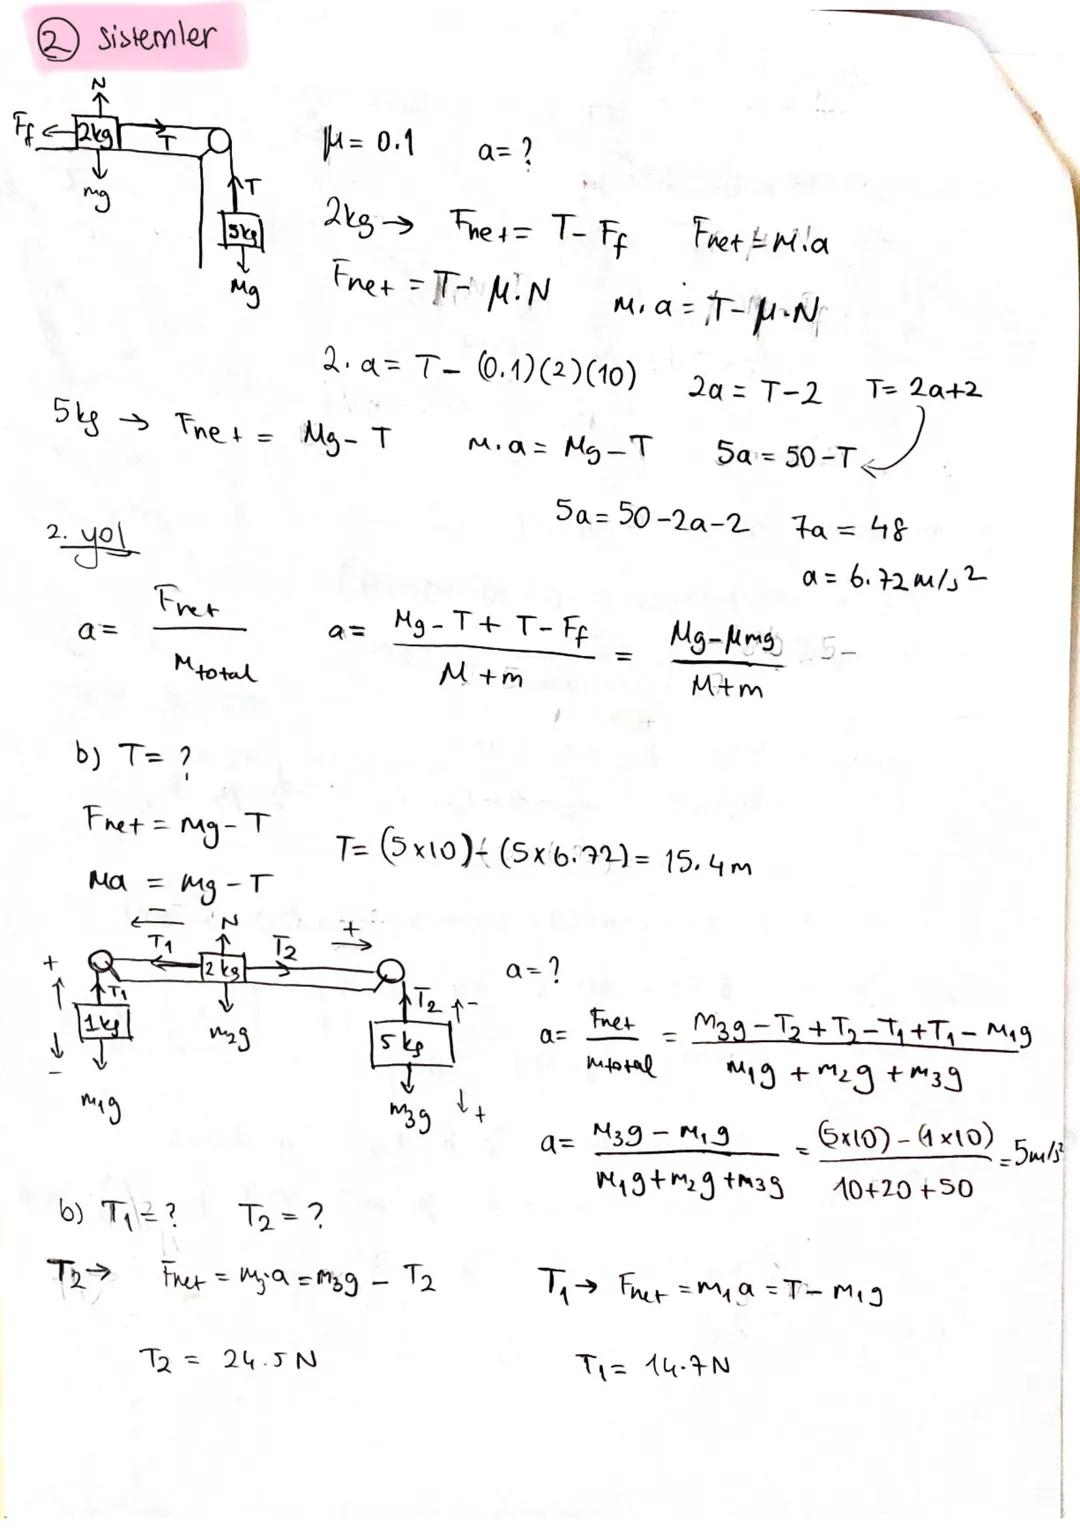 2 sistemler
N
Ff 2kg T
mg
T
5kg
Mg
μ = 0.1 a = ?
2kg → Fnet = T - Ff Fnet = m.a
Fnet = T - μ.N m.a = T - μ.N
2.a = T - (0.1)(2)(10) 2a = T-2 T = 2a+2
5kg → Fnet = Mg - T M.a = Mg - T 5a = 50 - T
5a = 50 - 2a - 2 7a = 48
a = 6.72 m/s²
2. yol
a = Fnet / Mtotal a = Mg - T + T - Ff / M + m = Mg - μmg / M + m
b) T = ?
Fnet = Mg - T
Ma = Mg - T T = (5x10) - (5x6.72) = 15.4 m
- N +
T1 2 kg T2
+ T1 T2 -
1kg m2g 5 kg
-
m1g m3g +
a = ?
a = Fnet / mtotal = M3g - T2 + T2 - T1 + T1 - M1g / M1g + m2g + m3g
a = M3g - M1g / M1g + m2g + m3g = (5x10) - (1x10) / 10+20+50 = 5m/s²
b) T1 = ? T2 = ?
T2 → Fnet = m3.a = m3g - T2 T1 → Fnet = m1a = T - m1g
T2 = 24.5 N T1 = 14.7N